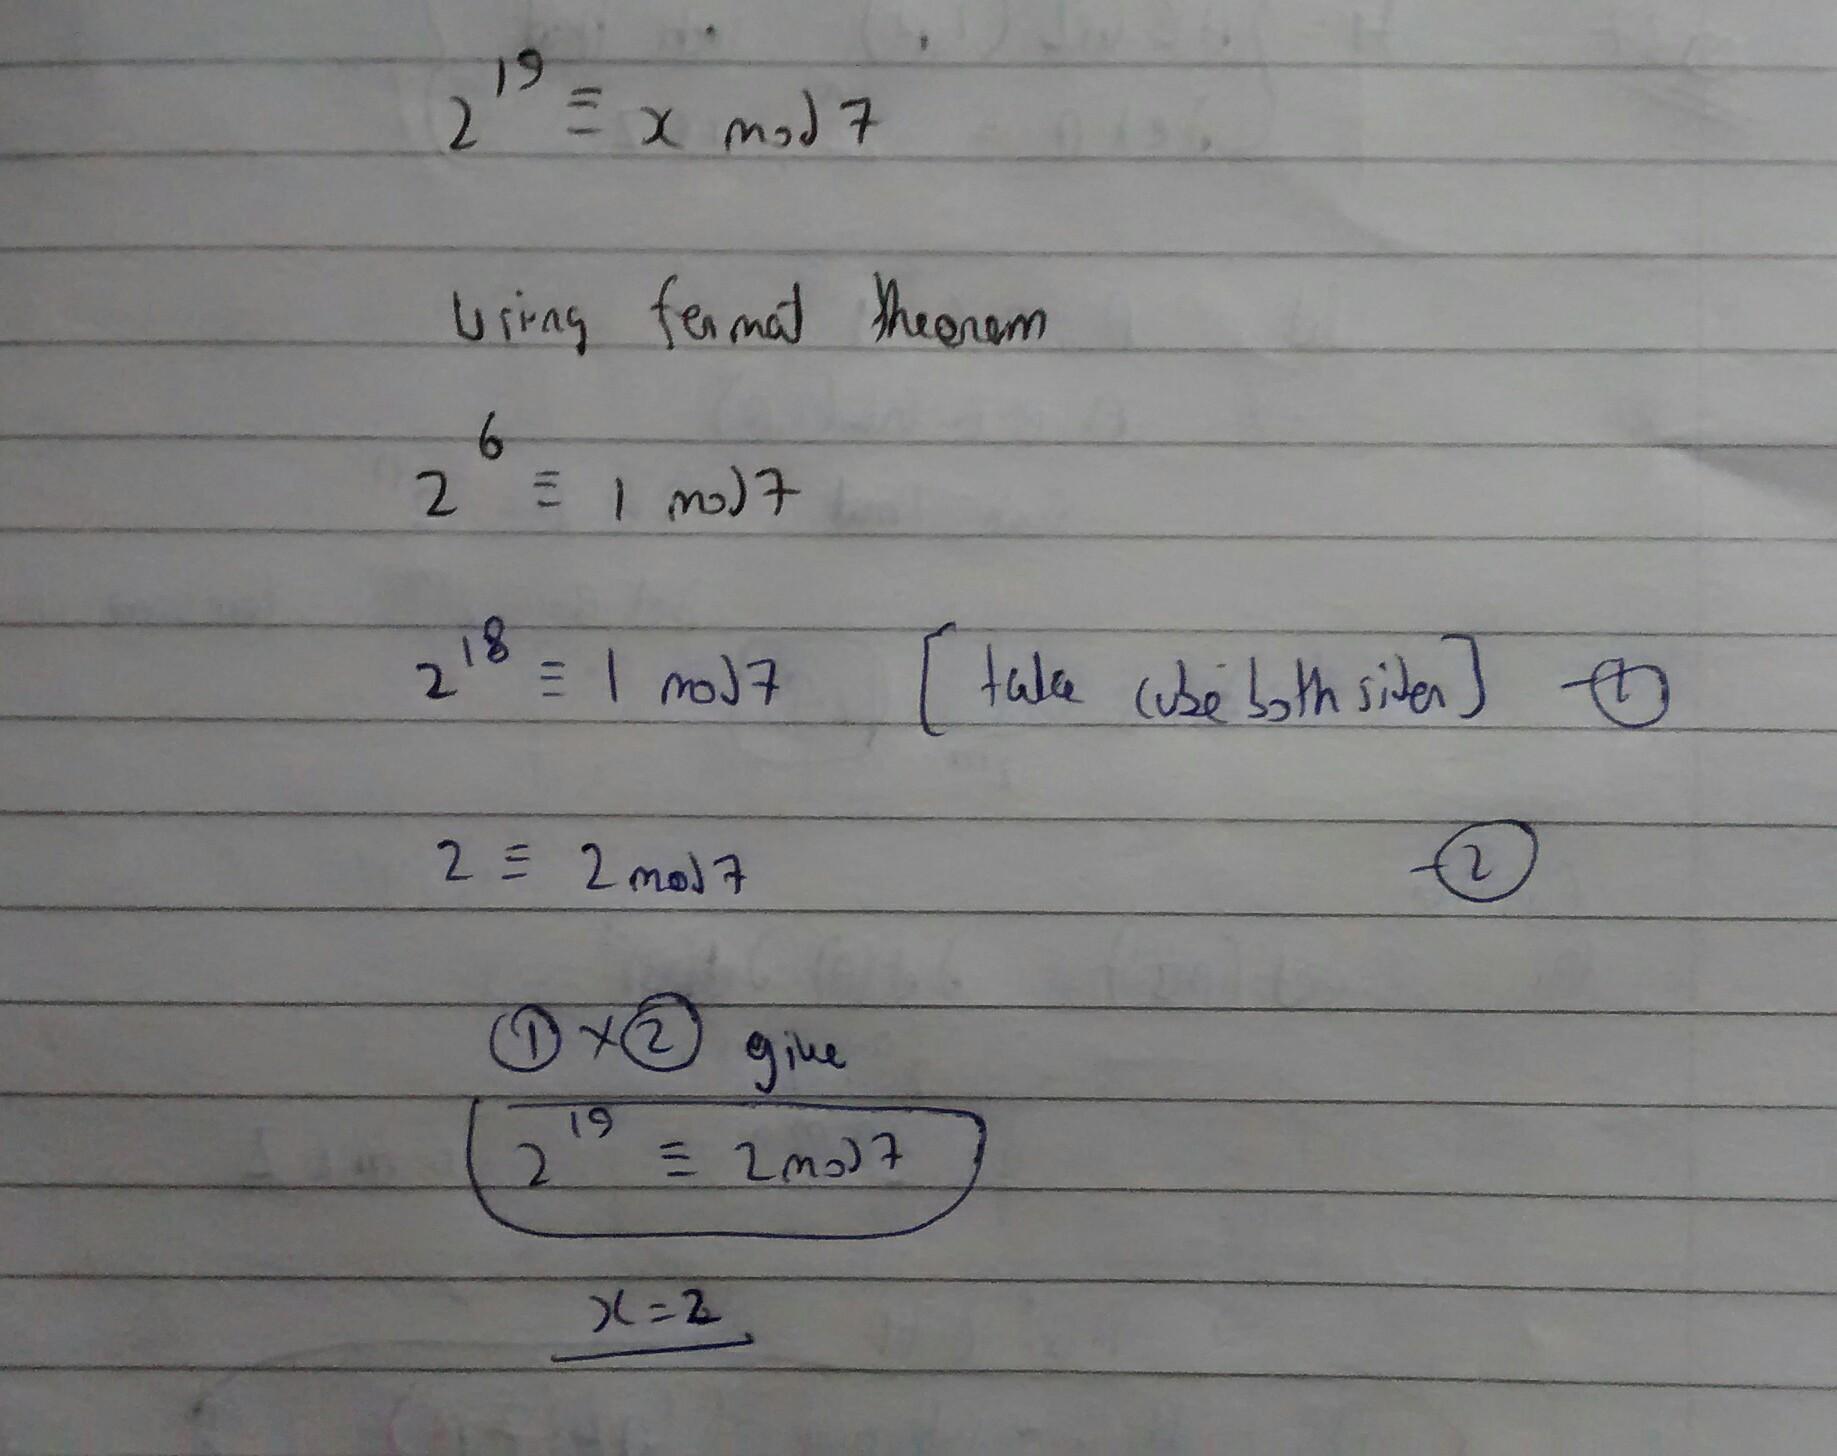 2^19 ≡ x mod 7
Using fermat theorem
2^6 ≡ 1 mod 7
2^18 ≡ 1 mod 7 [take cube both sides] - ①
2 ≡ 2 mod 7 - ②
① × ② give
2^19 ≡ 2 mod 7
x = 2